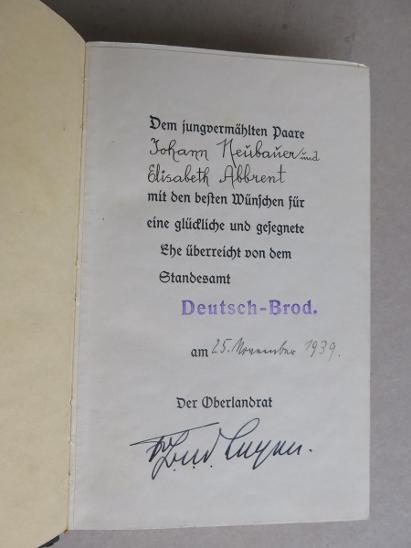 Dem jungvermählten Paare
Johann Neubauer und
Elisabeth Abbrent
mit den besten Wünschen für
eine glückliche und gesegnete
Ehe überreicht von dem
Standesamt
Deutsch-Brod.
am 25. November 1939.
Der Oberlandrat